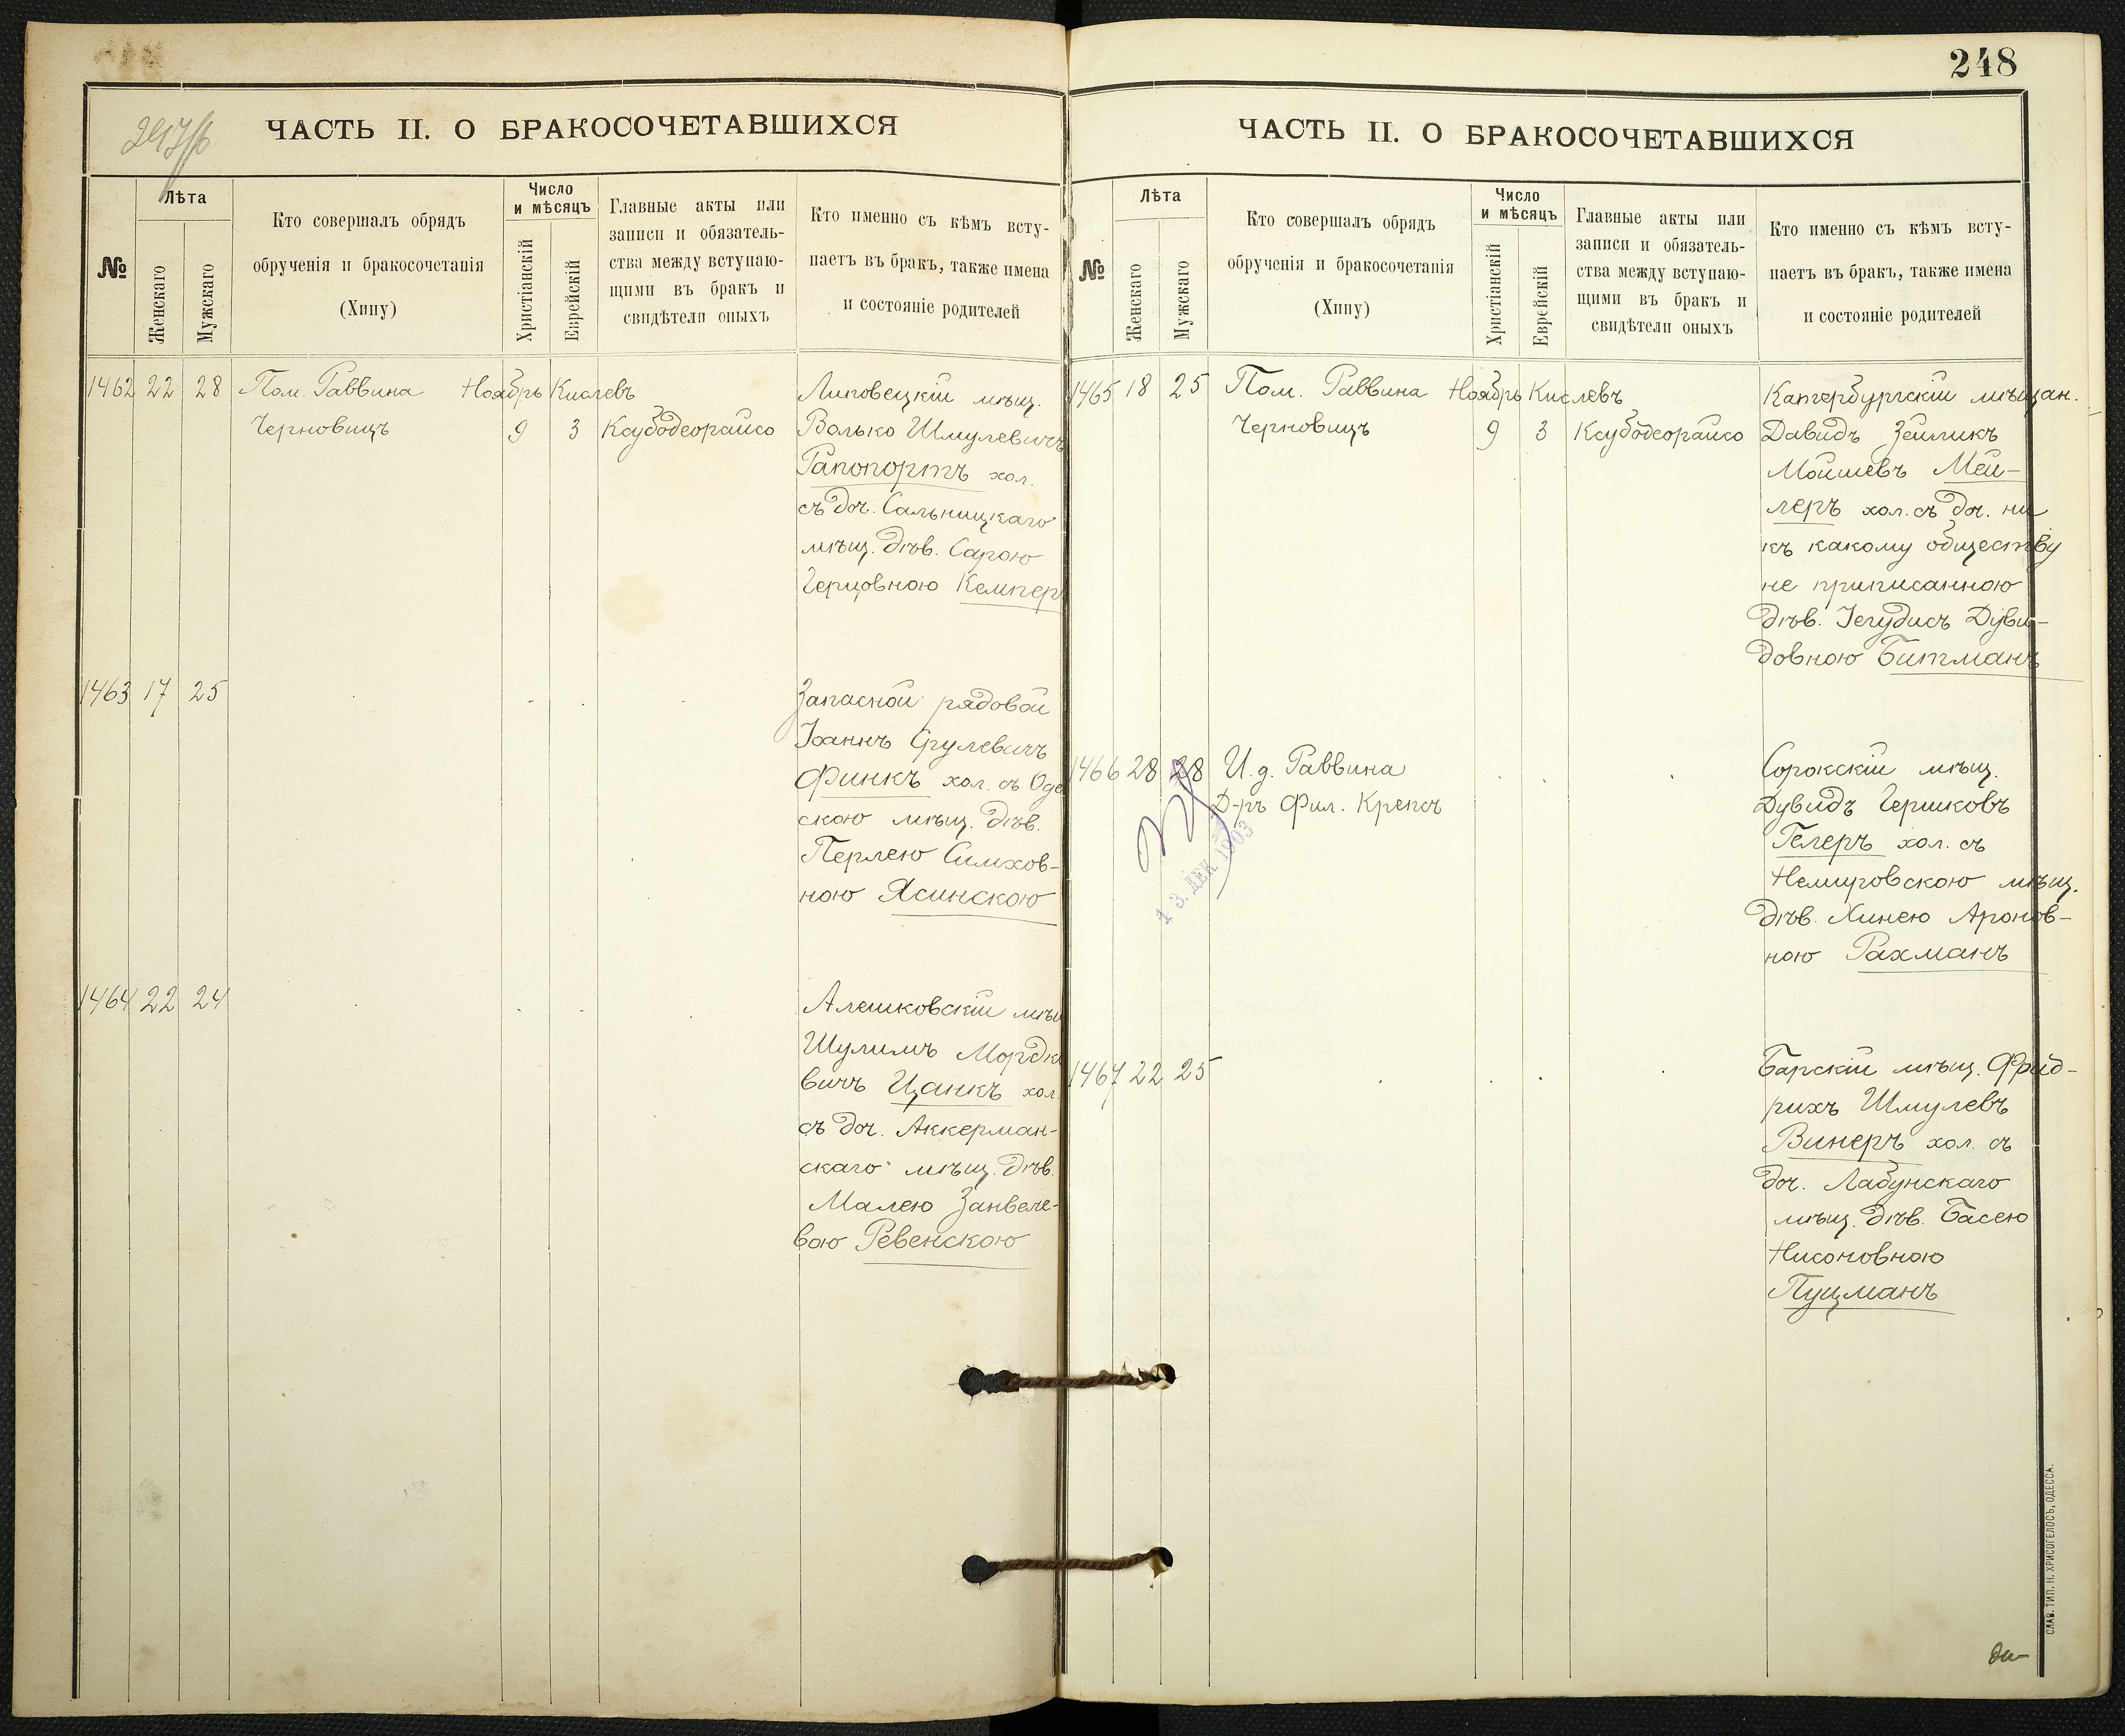 247/б
ЧАСТЬ II. О БРАКОСОЧЕТАВШИХСЯ
№
Лѣта
Женскаго
Мужскаго
Кто совершалъ обрядъ
обрученія и бракосочетанія
(Хипу)
Число
и мѣсяцъ
Христіанскій
Еврейскій
Главные акты или
записи и обязатель-
ства между вступаю-
щими въ бракъ и
свидѣтели оныхъ
Кто именно съ кѣмъ всту-
паетъ въ бракъ, также имена
и состояніе родителей
1462 22 28 Пом. Раввина Ноябрь Кислевъ Липовецкій мѣщ.
Черновицъ 9 3 Ксубодеорайсо Волько Шмулевичъ
Рапопортъ хол.
съ доч. Сальницкаго
мѣщ. дѣв. Сарою
Герцовною Кемпер
1463 17 25 Запасной рядовой
Іоаннъ Срулевичъ
Финкъ хол. съ Оде
скою мѣщ. дѣв.
Перлею Симхов-
ною Ясинскою
1464 22 24 Алешковскій мѣщ
Шулимъ Мордко
вичъ Цанкъ хол.
съ доч. Аккерман-
скаго мѣщ. дѣв.
Малею Занвеле-
вою Ревенскою
248
ЧАСТЬ II. О БРАКОСОЧЕТАВШИХСЯ
№
Лѣта
Женскаго
Мужскаго
Кто совершалъ обрядъ
обрученія и бракосочетанія
(Хипу)
Число
и мѣсяцъ
Христіанскій
Еврейскій
Главные акты или
записи и обязатель-
ства между вступаю-
щими въ бракъ и
свидѣтели оныхъ
Кто именно съ кѣмъ всту-
паетъ въ бракъ, также имена
и состояніе родителей
1465 18 25 Пом. Раввина Ноябрь Кислевъ мѣщан.
Черновицъ 9 3 Ксубодеорайсо Давидъ Зейликъ
Мойшевъ Мей-
леръ хол. съ доч. ни
къ какому обществу
не приписанною
дѣв. Іегудисъ Дуви-
довною Битманъ
1466 28 28 И. д. Раввина Сорокскій мѣщ.
Д-ръ Фил. Крепсъ Дувидъ Гершковъ
13. ДЕК. 1903
Гелеръ хол. съ
Немировскою мѣщ.
дѣв. Хинею Аронов-
ною Рахманъ
1467 22 25 Барскій мѣщ. Фрид-
рихъ Шмулевъ
Винеръ хол. съ
доч. Лабунскаго
мѣщ. дѣв. Басею
Нисоновною
Пуцманъ
СЛАВ. ТИП. Н. ХРИСОГЕЛОСЪ, ОДЕССА.